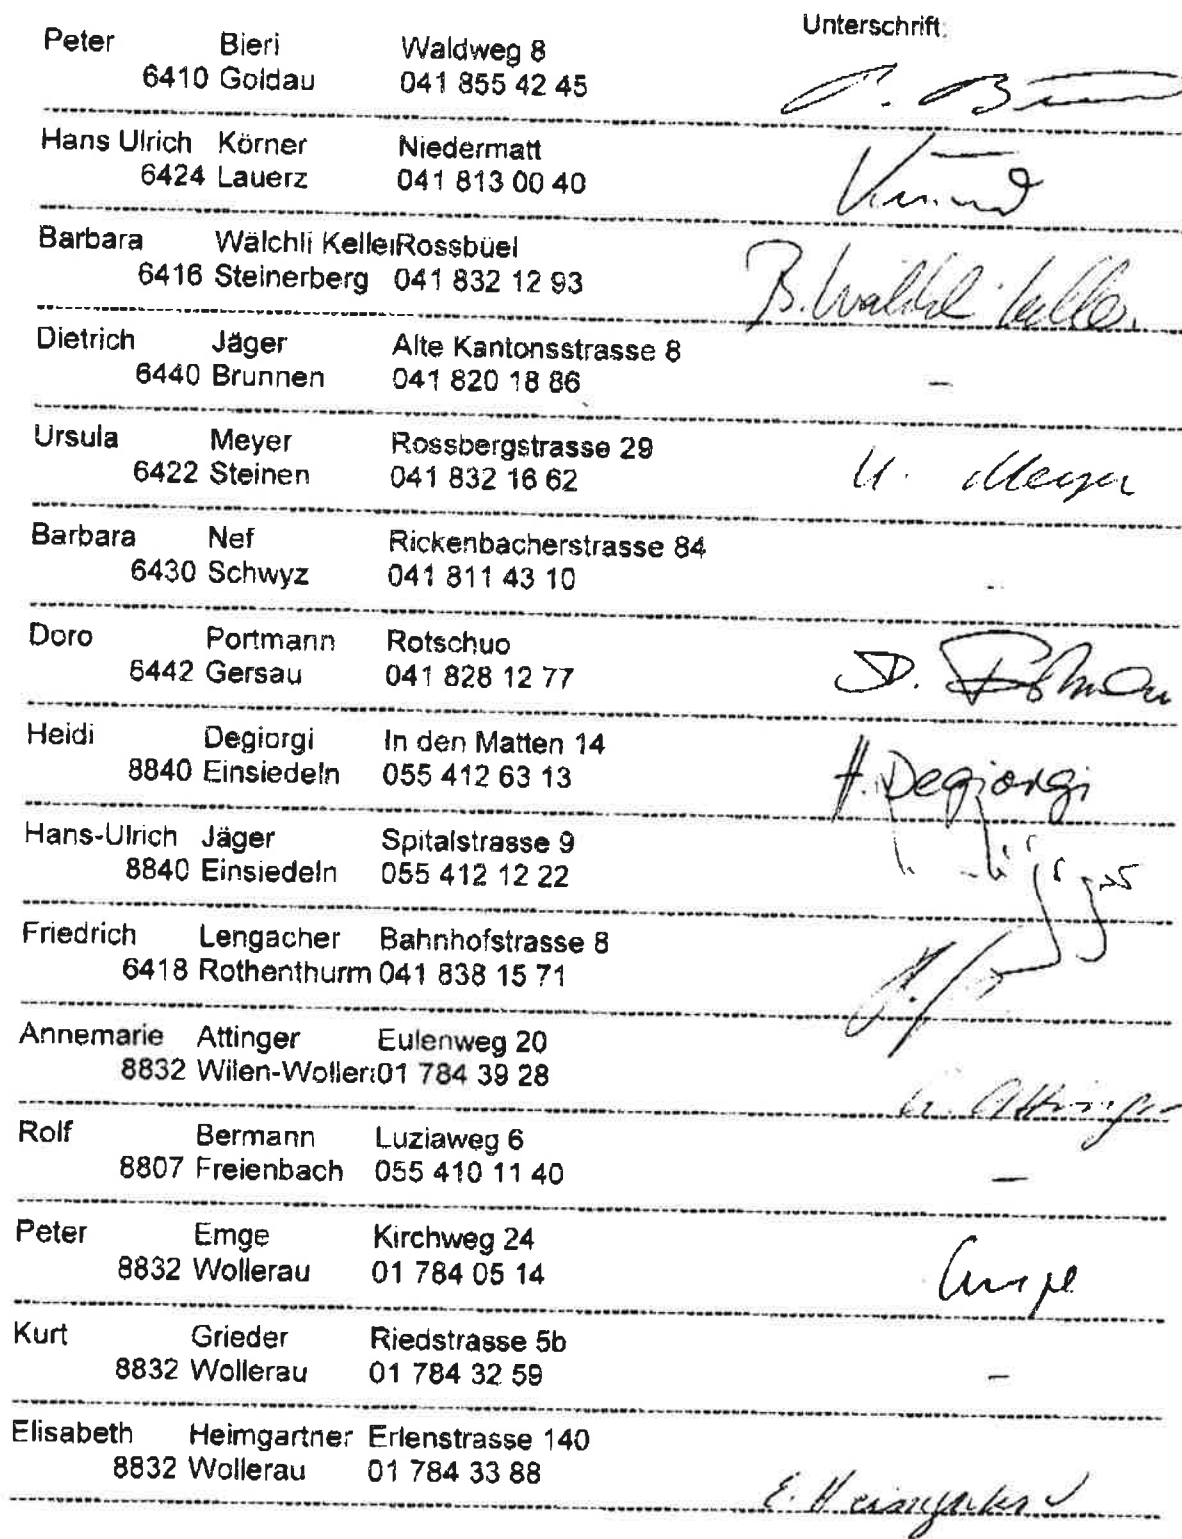 Unterschrift:
Peter Bieri Waldweg 8
6410 Goldau 041 855 42 45
Hans Ulrich Körner Niedermatt
6424 Lauerz 041 813 00 40
Barbara Wälchli Keller Rossbüel
6416 Steinerberg 041 832 12 93
B. Wälchli Keller
Dietrich Jäger Alte Kantonsstrasse 8
6440 Brunnen 041 820 18 86
–
Ursula Meyer Rossbergstrasse 29
6422 Steinen 041 832 16 62
U. Meyer
Barbara Nef Rickenbacherstrasse 84
6430 Schwyz 041 811 43 10
Doro Portmann Rotschuo
6442 Gersau 041 828 12 77
Heidi Degiorgi In den Matten 14
8840 Einsiedeln 055 412 63 13
H. Degiorgi
Hans-Ulrich Jäger Spitalstrasse 9
8840 Einsiedeln 055 412 12 22
Friedrich Lengacher Bahnhofstrasse 8
6418 Rothenthurm 041 838 15 71
Annemarie Attinger Eulenweg 20
8832 Wilen-Woller 01 784 39 28
A. Attinger
Rolf Bermann Luziaweg 6
8807 Freienbach 055 410 11 40
–
Peter Emge Kirchweg 24
8832 Wollerau 01 784 05 14
Emge
Kurt Grieder Riedstrasse 5b
8832 Wollerau 01 784 32 59
–
Elisabeth Heimgartner Erlenstrasse 140
8832 Wollerau 01 784 33 88
E. Heimgartner